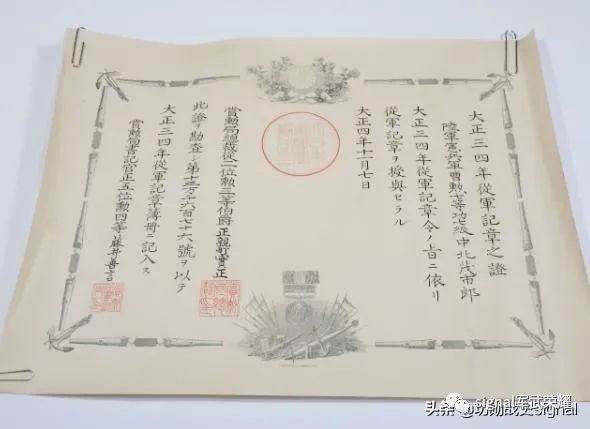 大正三四年從軍記章之證
陸軍憲兵軍曹勲七等功七級中北茂市郎
大正三四年從軍記章令ノ旨ニ依リ
從軍記章ヲ授與セラル
大正四年十一月七日
賞勲局總裁從二位勲三等伯爵正親町實正
此證ヲ勘査シ第十三万六百七十六號ヲ以テ
大正三四年從軍記章簿冊ニ記入ス
賞勲局書記官正五位勲四等藤井善言
signal军武荣耀
头条 @功勋战史signal